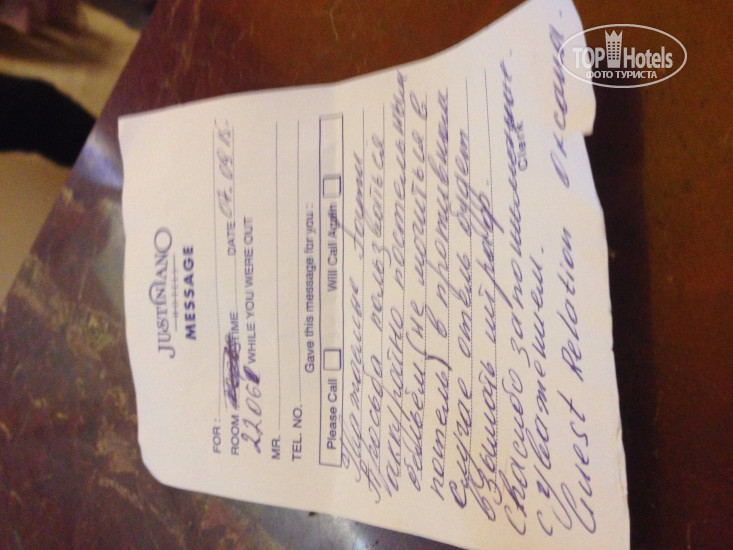 JUSTINIANO
HOTELS
MESSAGE
FOR :
ROOM TIME DATE 07.09.15
22061 WHILE YOU WERE OUT
MR.
TEL. NO.
Gave this message for you :
Please Call Will Call Again
Уважаемые гости
Просьба пользоваться
аккуратно постельным
бельём (не мочиться в
постель) в противном
случае отель будет
взымать штраф.
Спасибо за понимание.
Clerk
с уважением.
Guest Relation Оксана.
TOP Hotels
ФОТО ТУРИСТА